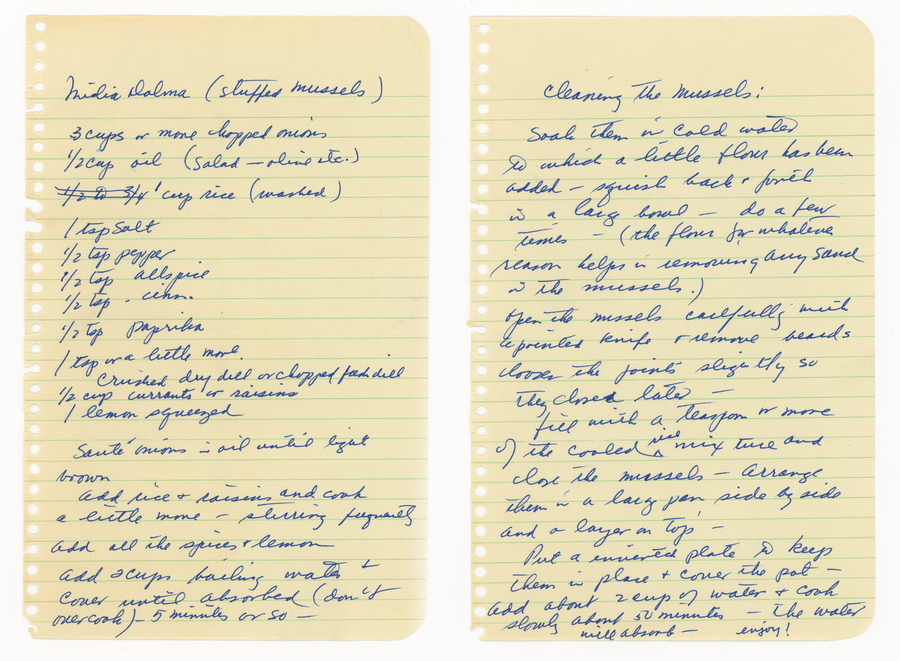 Midia Dolma (stuffed mussels)
3 cups or more chopped onions
1/2 cup oil (salad — olive etc.)
1/2 to 3/4 1 cup rice (washed)
1 tsp salt
1/2 tsp pepper
1/2 tsp allspice
1/2 tsp. cinn.
1/2 tsp paprika
1 tsp or a little more
crushed dry dill or chopped fresh dill
1/2 cup currants or raisins
1 lemon squeezed
Sauté onions in oil until light
brown
add rice + raisins and cook
a little more — stirring frequently
add all the spices + lemon
add 2 cups boiling water +
cover until absorbed (don't
overcook) — 5 minutes or so —
Cleaning the Mussels:
Soak them in cold water
to which a little flour has been
added — squish back + forth
in a large bowl — do a few
times — (the flour for whatever
reason helps in removing any sand
in the mussels.)
open the mussels carefully with
a pointed knife + remove beards
loosen the joints slightly so
they closed later —
fill with a teaspoon or more
of the cooled rice mixture and
close the mussels — arrange
them in a large pan side by side
and a layer on top —
Put a inverted plate to keep
them in place + cover the pot —
add about 2 cup of water + cook
slowly about 50 minutes — the water
will absorb — enjoy!